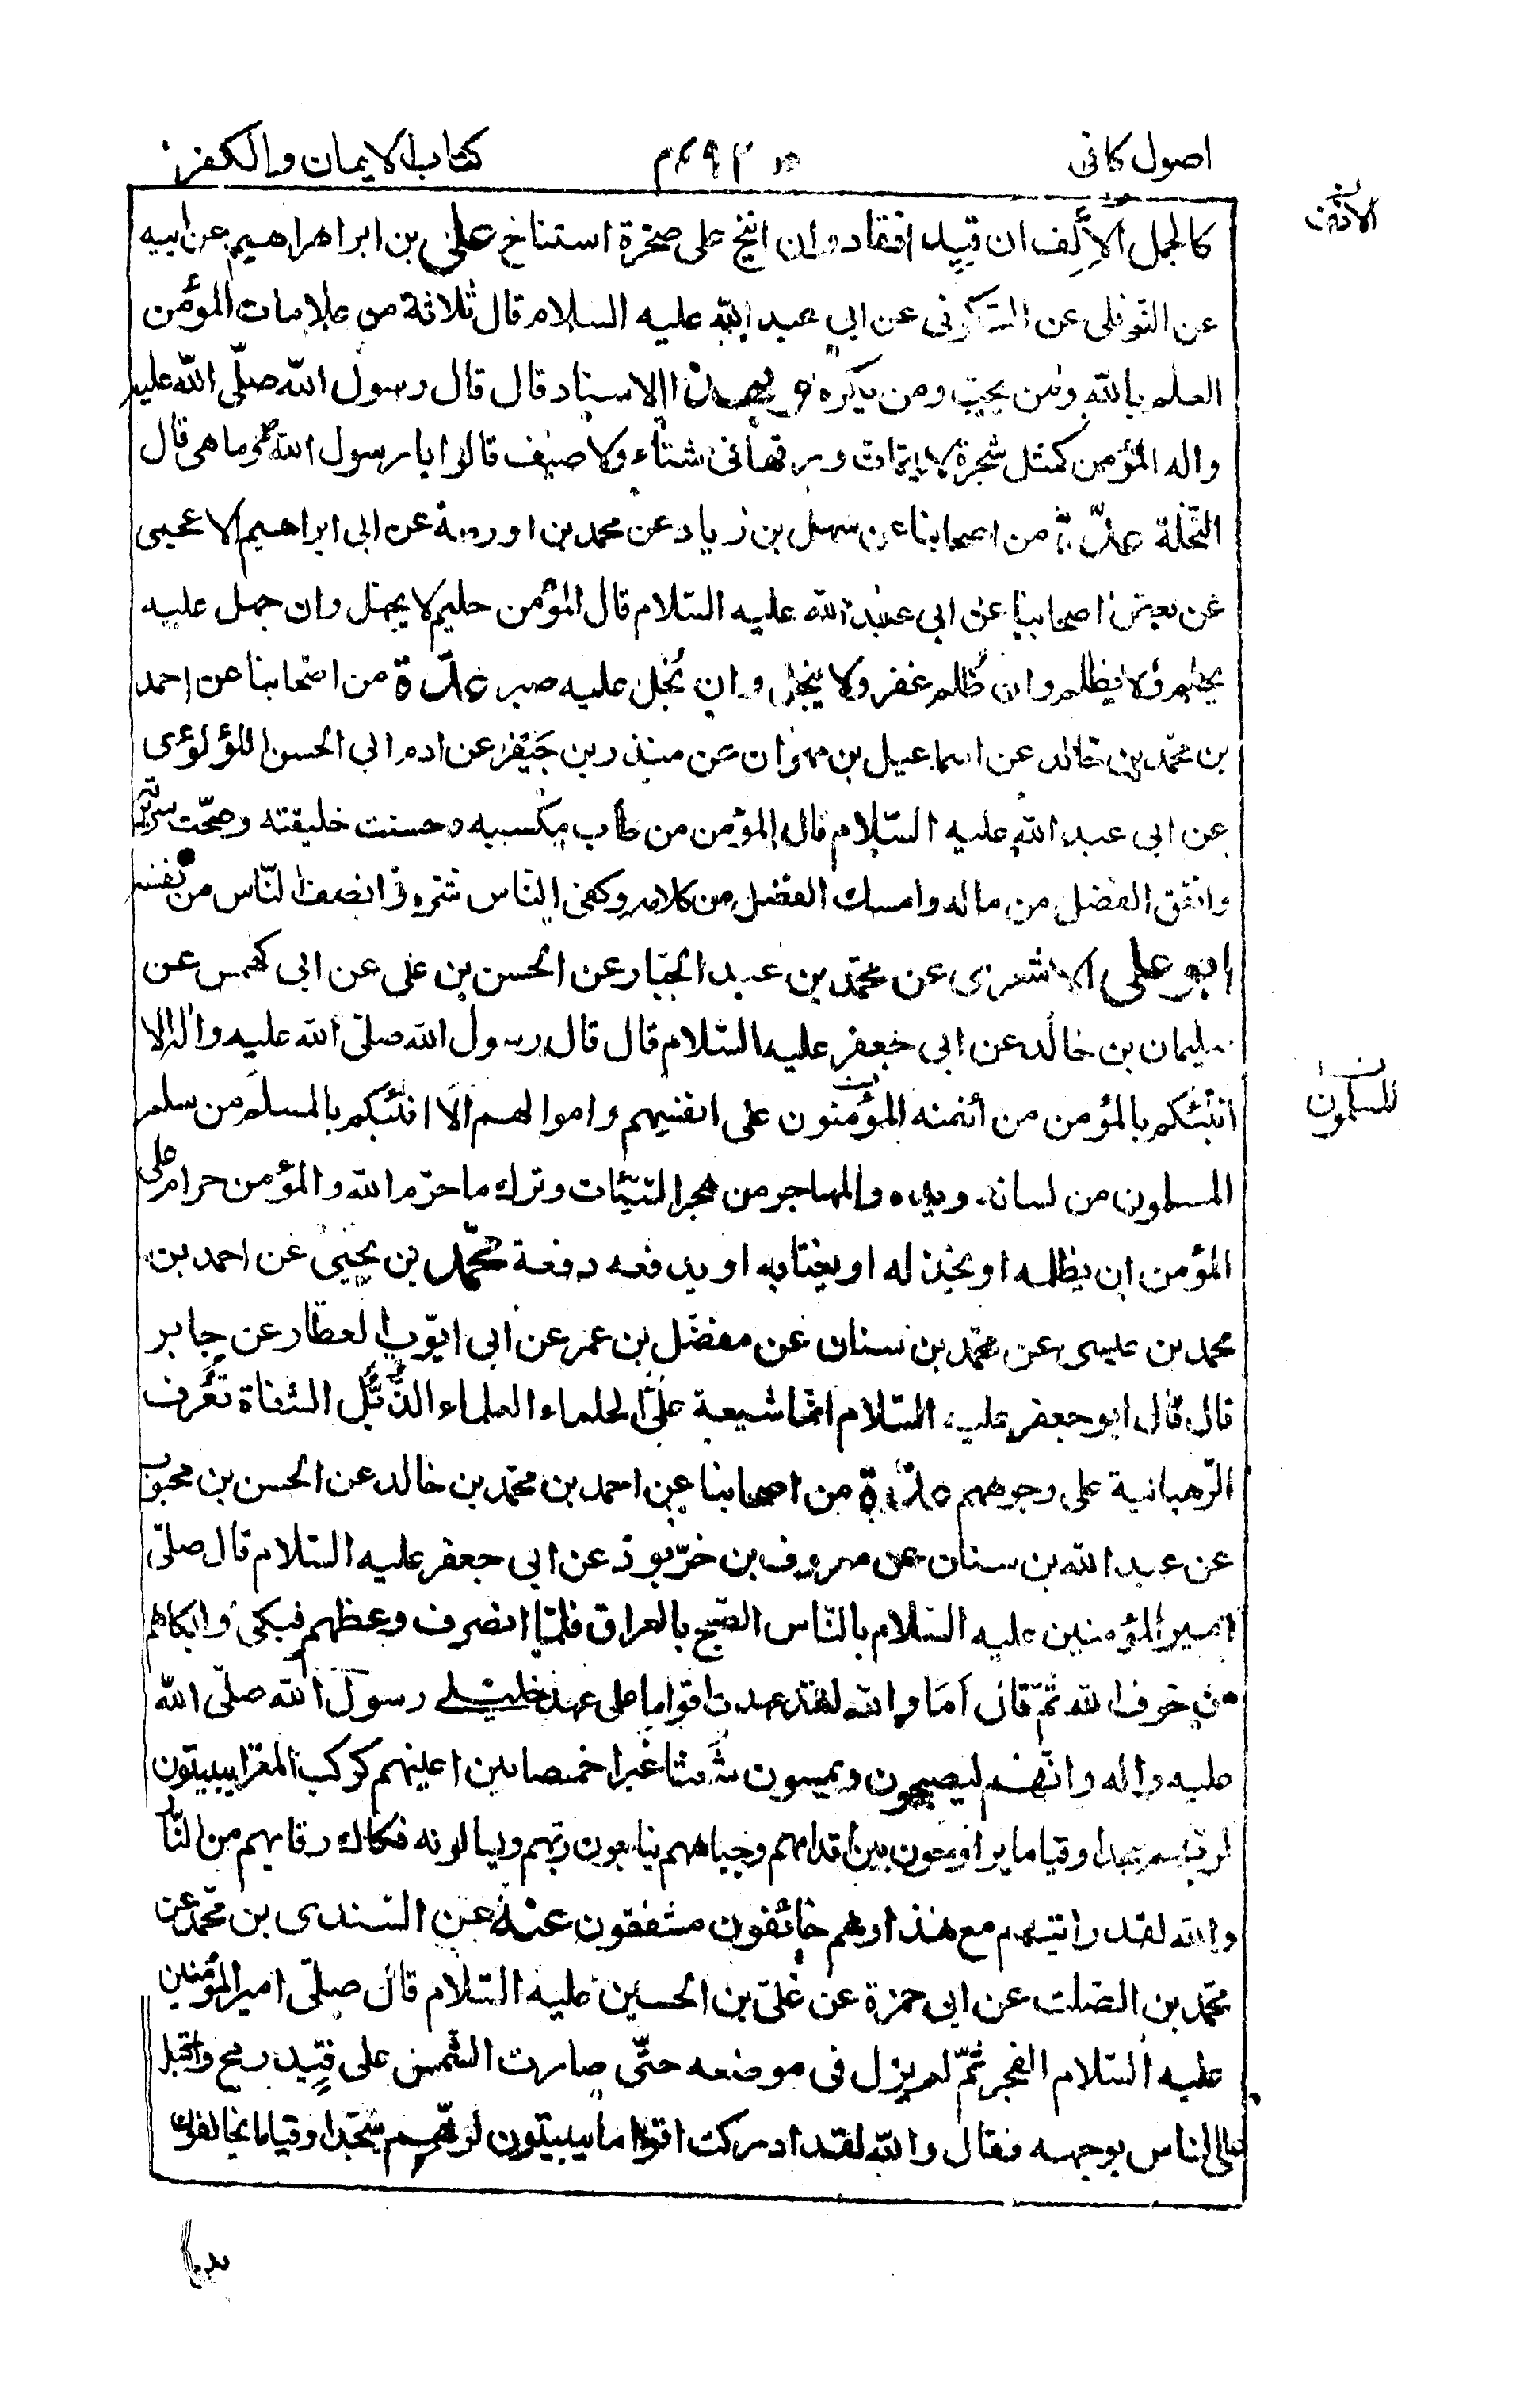 اصول كافى ٤٩٢ كتاب الايمان والكفر
الانف
كالجمل الألف ان قيد انقاد وان انيخ على صخرة استناخ على بن ابراهيم عن ابيه
عن النوفلى عن السكونى عن ابي عبد الله عليه السلام قال ثلاثة من علامات المؤمن
العلم بالله ومن يحب ومن يكره وبهذا الاسناد قال قال رسول الله صلّى الله عليه
واله المؤمن كمثل شجرة لا يتحات ورقها فى شتاء ولا صيف قالوا يا رسول الله وما هى قال
النّخلة عدّة من اصحابنا عن سهل بن زياد عن محمد بن اورمة عن ابى ابراهيم الاعجمى
عن بعض اصحابنا عن ابى عبد الله عليه السّلام قال المؤمن حليم لا يجهل وان جهل عليه
يحلم ولا يظلم وان ظُلم غفر ولا يبخل وان بُخل عليه صبر عدّة من اصحابنا عن احمد
بن محمّد بن خالد عن اسماعيل بن مهران عن منذر بن جَيفر عن ادم ابى الحسن اللؤلؤى
عن ابى عبد الله عليه السّلام قال المؤمن من طاب مكسبه وحسنت خليقته وصحّت سريرته
وانفق الفضل من ماله وامسك الفضل من كلامه وكفى الناس شره وانصف النّاس من نفسه
ابو على الاشعرى عن محمّد بن عبد الجبّار عن الحسن بن على عن ابى كهمس عن
سليمان بن خالد عن ابى جعفر عليه السّلام قال قال رسول الله صلّى الله عليه واله الا
انبّئكم بالمؤمن من ائتمنه المؤمنون على انفسهم واموالهم الا انبّئكم بالمسلم من سلم
المسلمون
المسلمون من لسانه ويده والمهاجر من هجر السّيّئات وترك ما حرّم الله والمؤمن حرام على
المؤمن ان يظلمه او يخذله او يغتابه او يدفعه دفعة محمّد بن يحيى عن احمد بن
محمد بن عيسى عن محمّد بن سنان عن مفضّل بن عمر عن ابى ايّوب العطّار عن جابر
قال قال ابو جعفر عليه السّلام انّما شيعة علىّ الحلماء العلماء الذُّبُل الشّفاة تُعرف
الرّهبانية على وجوههم عدّة من اصحابنا عن احمد بن محمّد بن خالد عن الحسن بن محبوب
عن عبد الله بن سنان عن معروف بن خرّبوذ عن ابى جعفر عليه السّلام قال صلّى
امير المؤمنين عليه السّلام بالنّاس الصّبح بالعراق فلمّا انصرف وعظهم فبكى وابكاهم
من خوف الله ثمّ قال اَمَا والله لقد عهدت اقواما على عهد خليلى رسول الله صلّى الله
عليه واله وانّهم ليصبحون ويمسون شُعثا غُبرا خمصا بين اعينهم كركب المعزا يبيتون
لربّهم سجدا وقياما يراوحون بين اقدامهم وجباههم يناجون ربّهم ويسالونه فكاك رقابهم من النّار
والله لقد رايتهم مع هذا وهم خائفون مشفقون عنه عن السّندى بن محمّد عن
محمّد بن الصّلت عن ابى حمزة عن علىّ بن الحسين عليه السّلام قال صلّى امير المؤمنين
عليه السّلام الفجر ثمّ لم يزل فى موضعه حتّى صارت الشّمس على قِيد رمح واقبل
على الناس بوجهه فقال والله لقد ادركت اقواما يبيتون لربّهم سُجّدا وقياما يخالفون